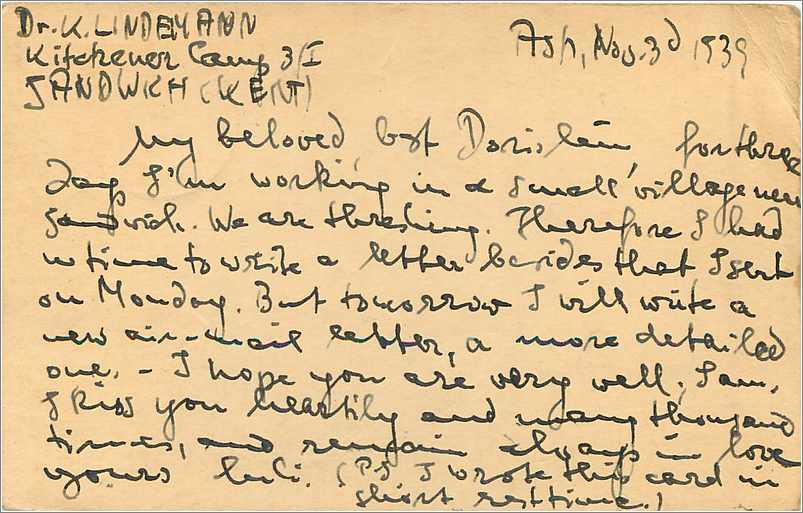 Dr. K. LINDEMANN
Kitchener Camp 3/I
SANDWICH (KENT)
Ash, Nov. 3d 1939
My beloved, best Dorislein, for three
days I'm working in a small village near
Sandwich. We are threshing. Therefore I had
no time to write a letter besides that I sent
on Monday. But tomorrow I will write a
new air-mail letter, a more detailed
one. - I hope you are very well. I am.
I kiss you heartily and many thousand
times, and remain always in love
yours (P.S. I wrote this card in
short resttime.)